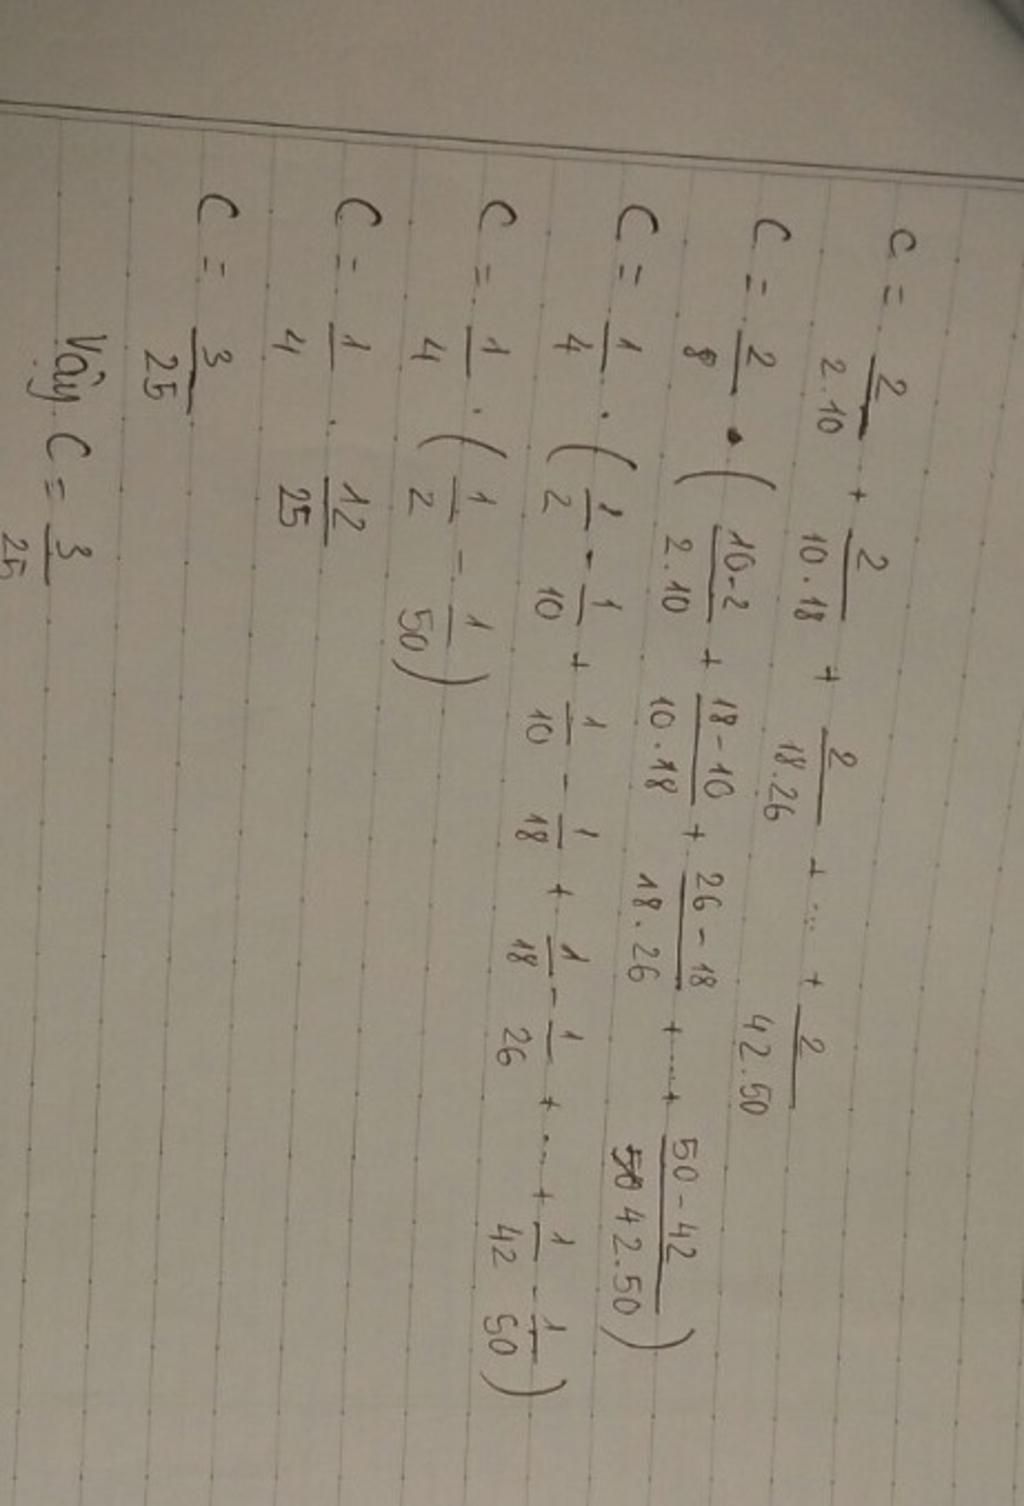 C = 2/2.10 + 2/10.18 + 2/18.26 + ... + 2/42.50
C = 2/8 . (10-2/2.10 + 18-10/10.18 + 26-18/18.26 + .... + 50-42/42.50)
C = 1/4 . (1/2 - 1/10 + 1/10 - 1/18 + 1/18 - 1/26 + .... + 1/42 - 1/50)
C = 1/4 . (1/2 - 1/50)
C = 1/4 . 12/25
C = 3/25
Vậy C = 3/25